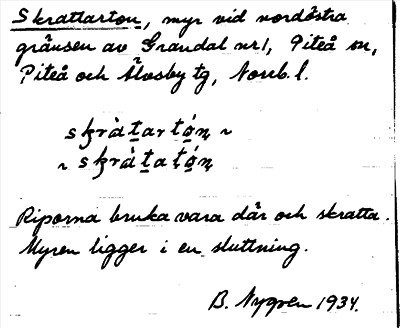 Skrattarton, myr vid nordöstra
gränsen av Grandal nr 1, Piteå sn,
Piteå och Älvsby tg, Norrb. l.
skràtartón ~
~ skràtatón
Riporna bruka vara där och skratta.
Myren ligger i en sluttning.
B. Nygren 1934.